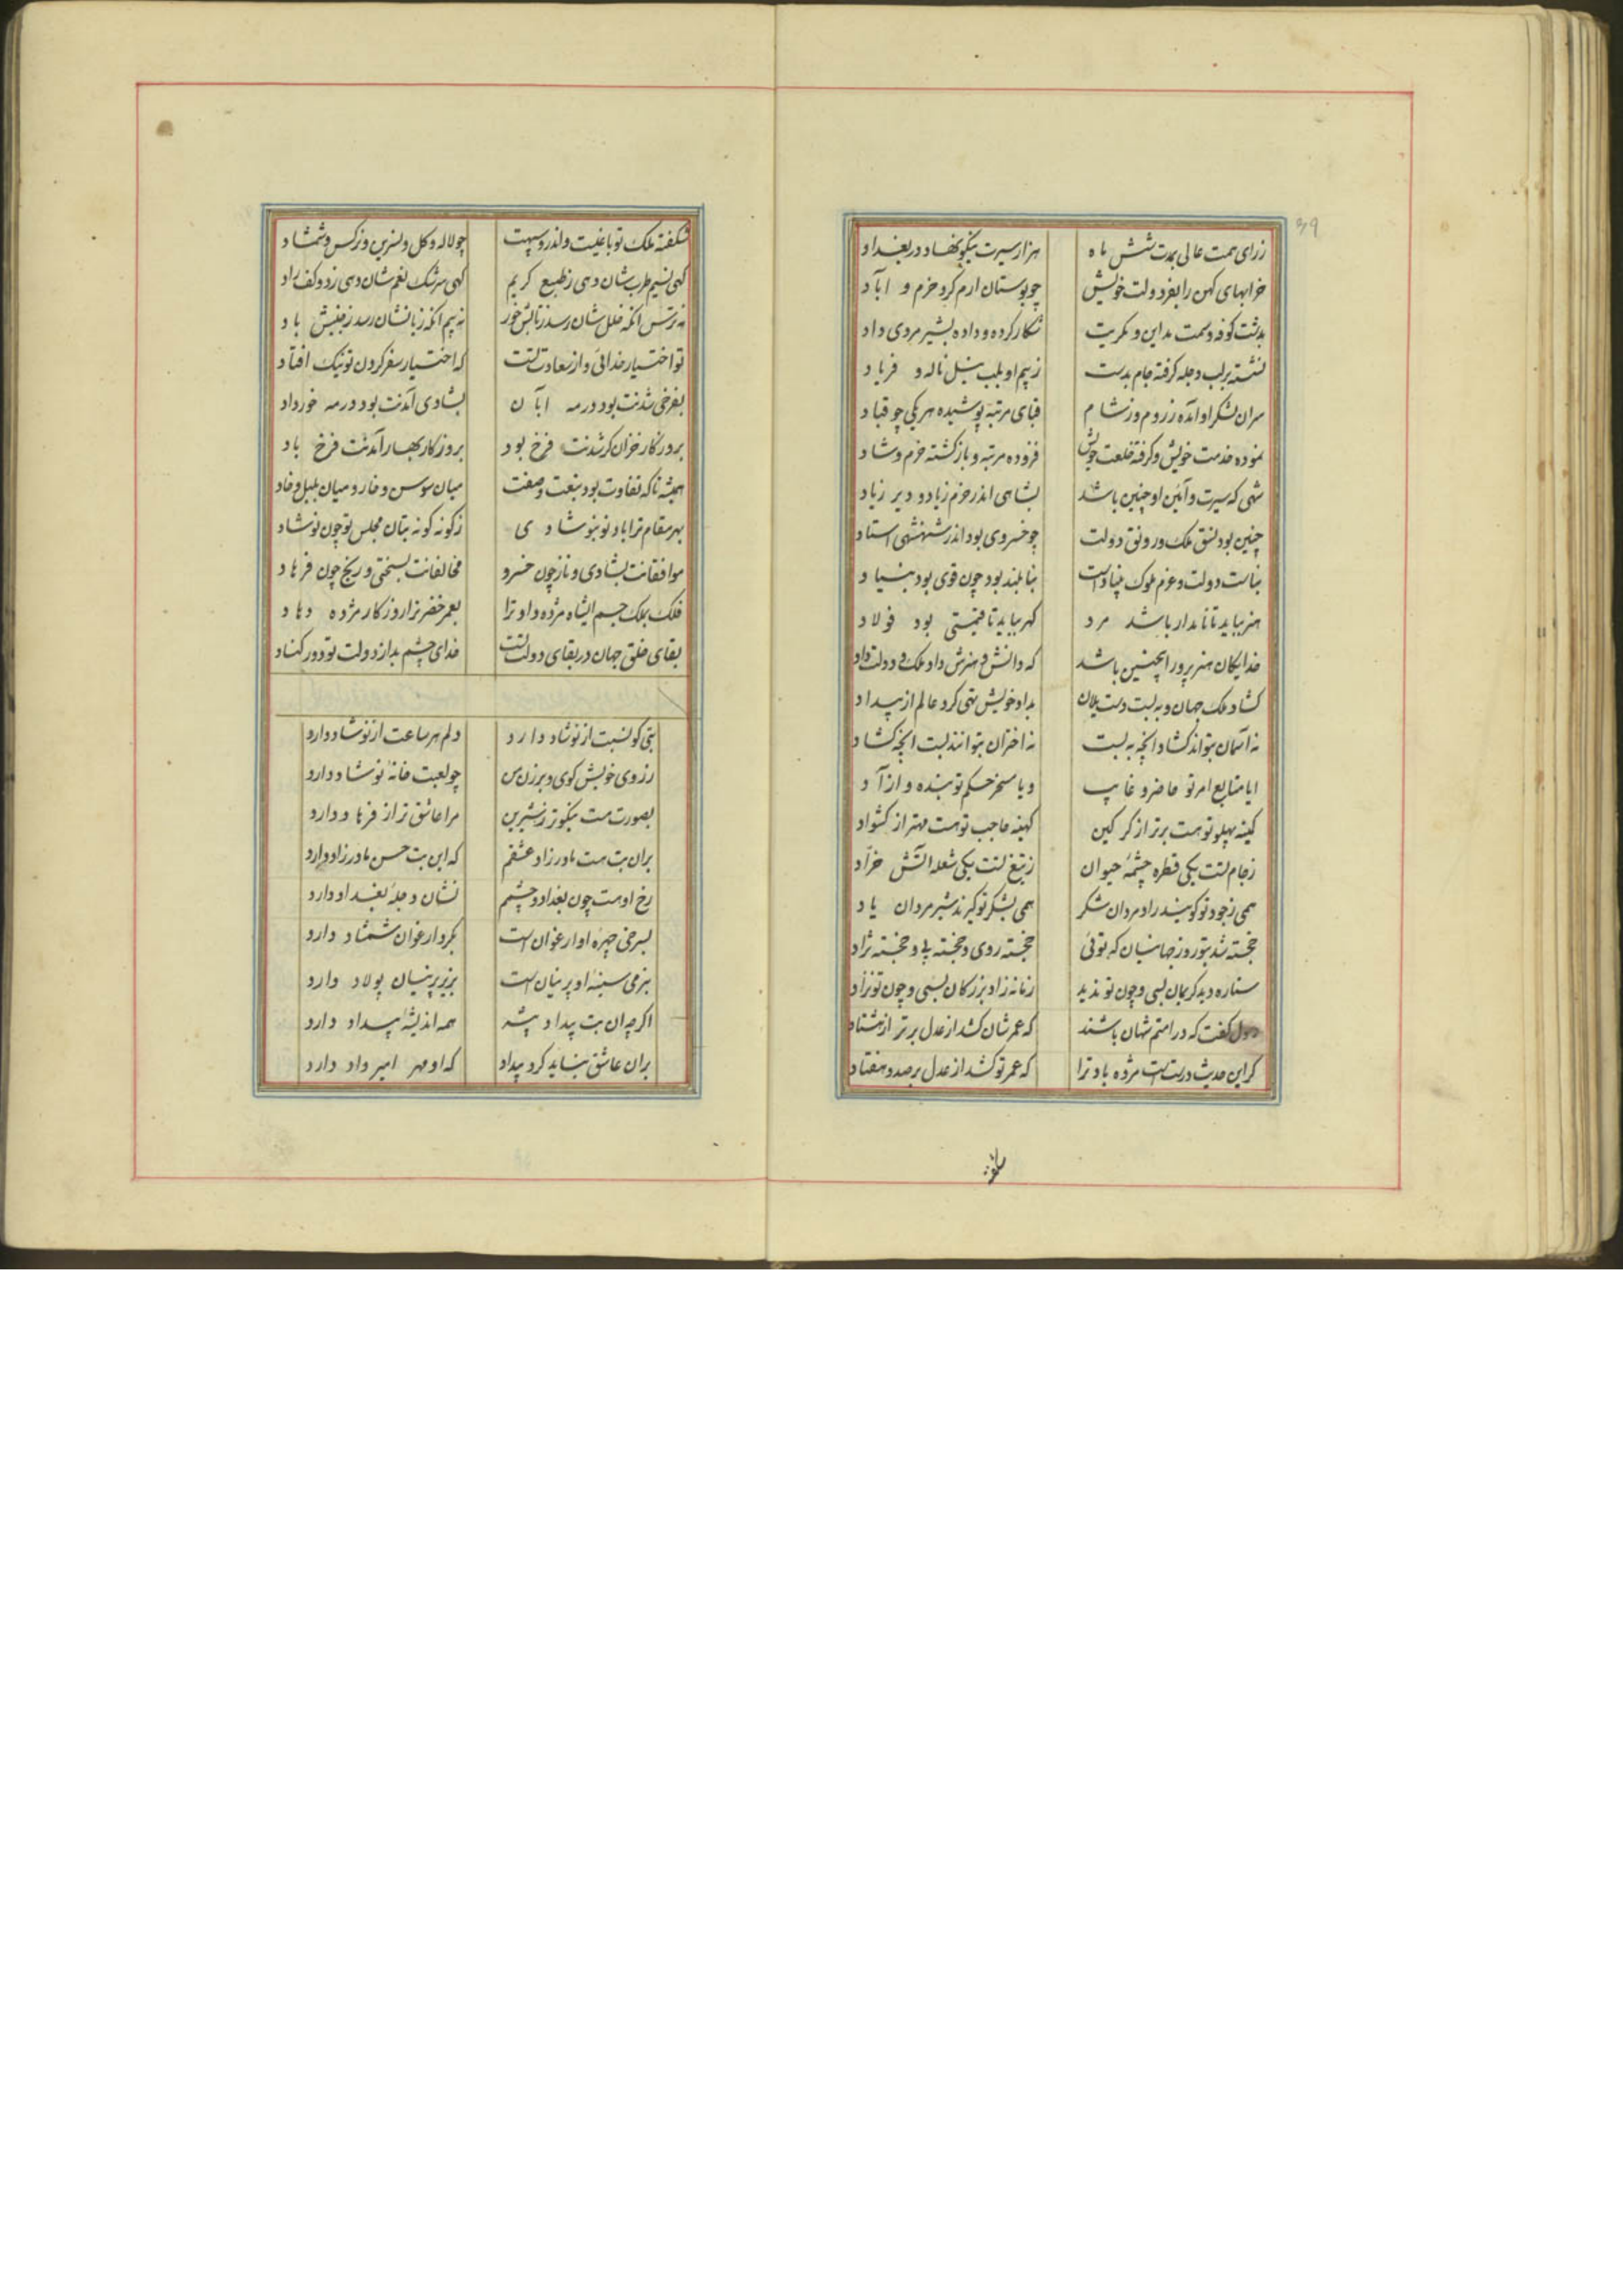 39
زرای همت عالی بمدت شش ماه هزار سیرت نیکو نهاد در بغداد
خرابهای کهن را بفر دولت خویش چو بوستان ارم کرد خرم و اباد
بدشت کوفه و سمت مداین و تکریت شکار کرده و داده بشیر مردی داد
نشسته بر لب دجله گرفته جام بدست زبیم او بلب نیل ناله و فریاد
سران لشکر او آمده ز روم و ز شام قبای مرتبه پوشیده هر یکی چو قباد
نموده خدمت خویش و گرفته خلعت خویش فزوده مرتبه و باز گشته خرم و شاد
شهی که سیرت و آئین او چنین باشد بشاهی اندر خرم زیاد و دیر زیاد
چنین بود نسق ملک و رونق دولت چو خسروی بود اندر شهنشهی استاد
بناست دولت و عزم ملوک بنیاد است بنا بلند بود چون قوی بود بنیاد
هنر بباید تا نامدار باشد مرد گهر بباید تا قیمتی بود فولاد
خدایگان هنر پرور اینچنین باشد که دانش و هنرش داد ملک و دولت داد
گشاد ملک جهان و به بست دست یلان بداد خویش تهی کرد عالم از بیداد
نه آسمان بتواند گشاد انچه به بست نه اختران بتوانند بست انچه گشاد
ایا متابع امر تو حاضر و غایب و یا مسخر حکم تو بنده و ازاد
کمینه پهلو تو هست برتر از گرگین کهینه حاجب تو هست مهتر از کشواد
ز جام تست یکی قطره چشمه حیوان ز تیغ تست یکی شعله اتش خراد
همی ز جود تو گویند راد مردان شکر همی بشکر تو گیرند شیر مردان یاد
خجسته شد بتو روز جهانیان که توئی خجسته روی و خجسته پی و خجسته نژاد
ستاره دید کریمان بسی و چون تو ندید زمانه زاد بزرگان بسی و چون تو نزاد
رسول گفت که در امتم شهان باشند که عمرشان کشد از عدل برتر از هشتاد
گر این حدیث درست است مژده باد ترا که عمر تو کشد از عدل بر صد و هفتاد
شکفته
شکفته ملک تو باغیست و اندرو سپهت چو لاله و گل و نسرین و نرگس و شمشاد
گهی نسیم طرب شان دهی ز طبع کریم گهی سرشک نعم شان دهی ز دو کف راد
نه ترس انکه خلل شان رسد ز تابش خور نه بیم انکه زیانشان رسد ز جنبش باد
تو اختیار خدائی و از سعادت تست که اختیار سفر کردن تو نیک افتاد
بفرخی شدنت بود در مه آبان بشادی آمدنت بود در مه خورداد
بروزگار خزان گر شدنت فرخ بود بروزگار بهار آمدنت فرخ باد
همیشه تا که تفاوت بود بنعت و صفت میان سوسن و خار و میان بلبل و خاد
بهر مقام ترا باد نو بنو شادی ز گونه گونه بتان مجلس تو چون نوشاد
موافقانت بشادی و ناز چون خسرو مخالفانت بسختی و رنج چون فرهاد
فلک بملک جم ایشاه مژده داد ترا بعمر خضر ترا روزگار مژده دهاد
بقای خلق جهان در بقای دولت تست خدای چشم بد از دولت تو دور کناد
بتی کو نسبت از نوشاد دارد دلم هر ساعت از نو شاد دارد
ز روی خویش کوی و برزن من چو لعبت خانه نوشاد دارد
بصورت هست نیکوتر ز شیرین مرا عاشق تر از فرهاد دارد
بران بت هست مادر زاد عشقم که این بت حسن مادر زاد دارد
رخ او هست چون بغداد و چشمم نشان دجله بغداد دارد
بسرخی چهره او ارغوان است بگرد ارغوان شمشاد دارد
بنرمی سینه او پرنیان است بزیر پرنیان پولاد دارد
اگر چه ان بت بیداد پیشه همه اندیشه بیداد دارد
بران عاشق نباید کرد بیداد که او مهر امیر داد دارد